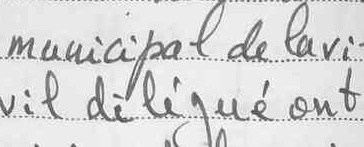 municipal de Ravi
vil délégué ont